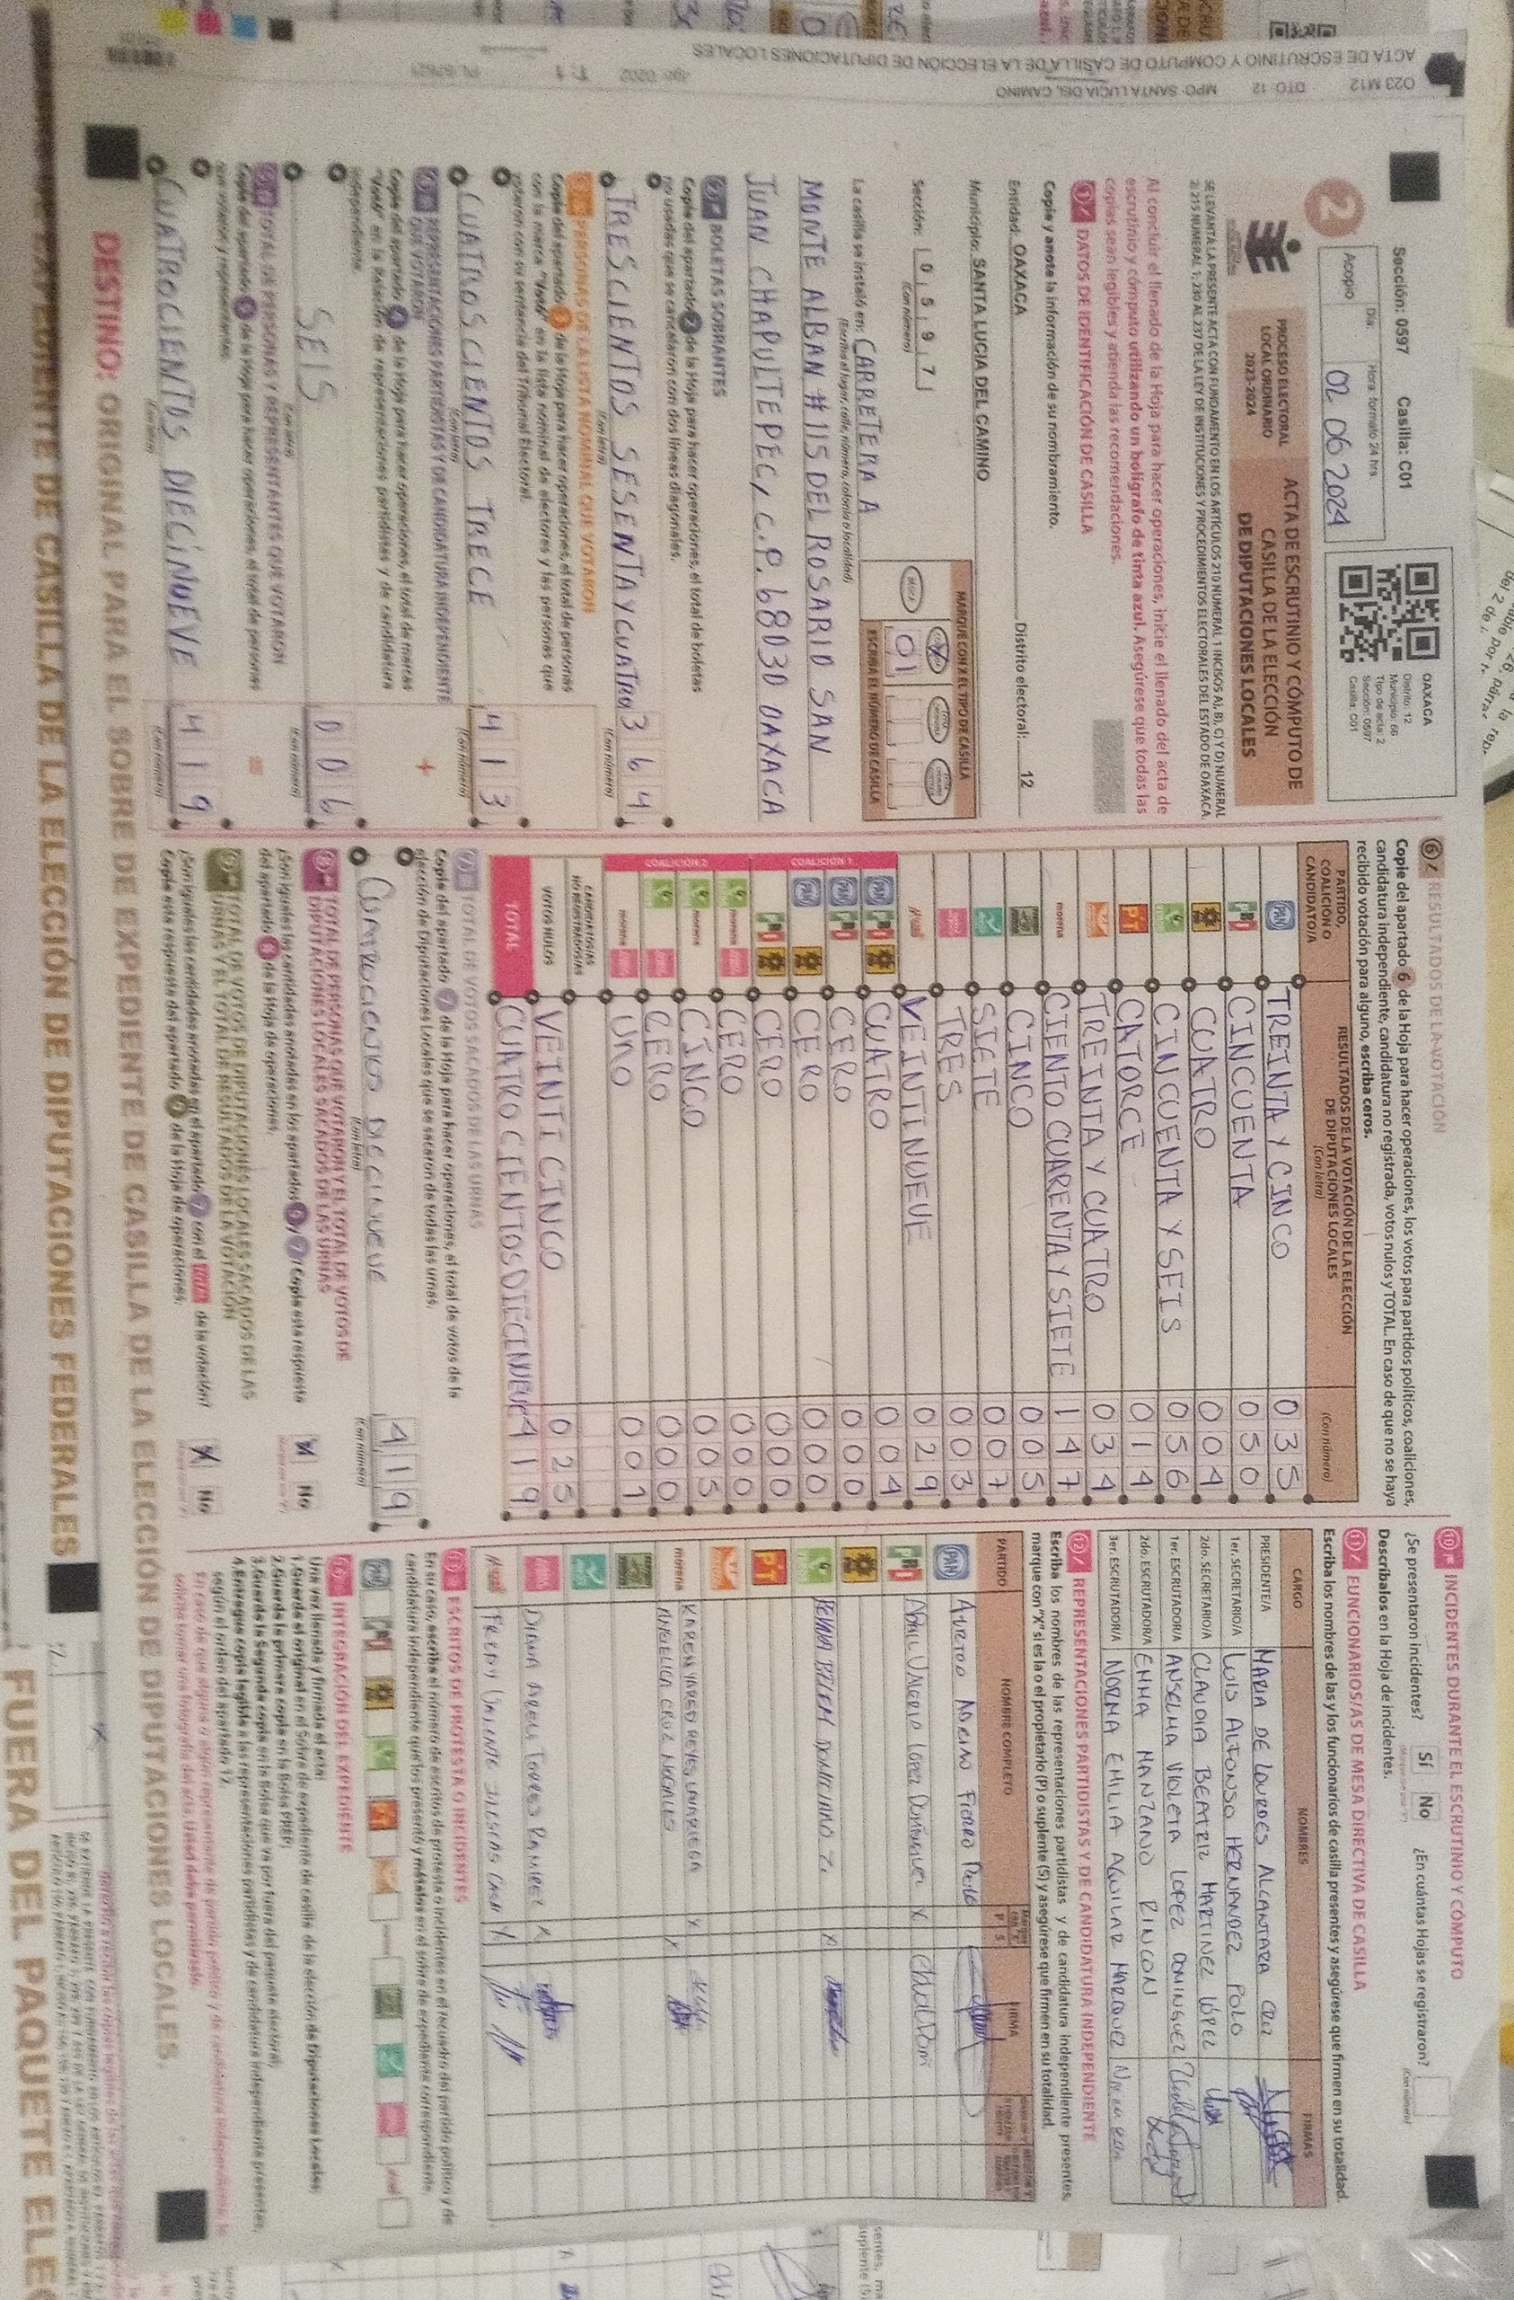 Sección: 0597 Casilla: C01
2
Acopio
Día: Hora: formato 24 hrs
02 06 2024
OAXACA
Distrito: 12
Municipio: 66
Tipo de acta: 2
Sección: 0597
Casilla: C01
PROCESO ELECTORAL
LOCAL ORDINARIO
2023-2024
ACTA DE ESCRUTINIO Y CÓMPUTO DE
CASILLA DE LA ELECCIÓN
DE DIPUTACIONES LOCALES
SE LEVANTA LA PRESENTE ACTA CON FUNDAMENTO EN LOS ARTÍCULOS 210 NUMERAL 1 INCISOS A), B), C) Y D) NUMERAL
2; 215 NUMERAL 1; 230 AL 237 DE LA LEY DE INSTITUCIONES Y PROCEDIMIENTOS ELECTORALES DEL ESTADO DE OAXACA
Al concluir el llenado de la Hoja para hacer operaciones, inicie el llenado del acta de
escrutinio y cómputo utilizando un bolígrafo de tinta azul. Asegúrese que todas las
copias sean legibles y atienda las recomendaciones.
1 DATOS DE IDENTIFICACIÓN DE CASILLA
Copie y anote la información de su nombramiento.
Entidad: OAXACA Distrito electoral: 12
Municipio: SANTA LUCIA DEL CAMINO
Sección: 0 5 9 7
(Con número)
MARQUE CON X EL TIPO DE CASILLA
01
ESCRIBA EL NÚMERO DE CASILLA
La casilla se instaló en: CARRETERA A
(Escriba el lugar, calle, número, colonia o localidad)
MONTE ALBAN #115 DEL ROSARIO SAN
JUAN CHAPULTEPEC, C.P. 68030 OAXACA
2 BOLETAS SOBRANTES
Copie del apartado 2 de la Hoja para hacer operaciones, el total de boletas
no usadas que se cancelaron con dos líneas diagonales.
TRESCIENTOS SESENTA Y CUATRO 3 6 4
(Con letra) (Con número)
3 PERSONAS DE LA LISTA NOMINAL QUE VOTARON
Copie del apartado 3 de la Hoja para hacer operaciones, el total de personas
con la marca "Votó" en la lista nominal de electores y las personas que
votaron con su sentencia del Tribunal Electoral.
CUATROSCIENTOS TRECE 4 1 3
(Con letra) (Con número)
4 REPRESENTACIONES PARTIDISTAS Y DE CANDIDATURA INDEPENDIENTE
QUE VOTARON
Copie del apartado 4 de la Hoja para hacer operaciones, el total de marcas
"Votó" en la Relación de representaciones partidistas y de candidatura
independiente.
SEIS 0 0 6
(Con letra) (Con número)
5 TOTAL DE PERSONAS Y REPRESENTANTES QUE VOTARON
Copie del apartado 5 de la Hoja para hacer operaciones, el total de personas
que votaron y representantes.
CUATROCIENTOS DIECINUEVE 4 1 9
(Con letra) (Con número)
6 RESULTADOS DE LA VOTACIÓN
Copie del apartado 6 de la Hoja para hacer operaciones, los votos para partidos políticos, coaliciones,
candidatura independiente, candidatura no registrada, votos nulos y TOTAL. En caso de que no se haya
recibido votación para alguno, escriba ceros.
PARTIDO,
COALICIÓN O
CANDIDATO/A
RESULTADOS DE LA VOTACIÓN DE LA ELECCIÓN
DE DIPUTACIONES LOCALES
(Con letra) (Con número)
PAN TREINTA Y CINCO 0 3 5
PRI CINCUENTA 0 5 0
CUATRO 0 0 4
CINCUENTA Y SEIS 0 5 6
PT CATORCE 0 1 4
TREINTA Y CUATRO 0 3 4
morena CIENTO CUARENTA Y SIETE 1 4 7
CINCO 0 0 5
SIETE 0 0 7
TRES 0 0 3
VEINTINUEVE 0 2 9
COALICIÓN 1
PAN PRI CUATRO 0 0 4
PAN PRI CERO 0 0 0
PAN CERO 0 0 0
PRI CERO 0 0 0
COALICIÓN 2
morena CERO 0 0 0
morena CINCO 0 0 5
CERO 0 0 0
morena UNO 0 0 1
CANDIDATOS/AS
NO REGISTRADOS/AS
VOTOS NULOS VEINTI CINCO 0 2 5
TOTAL CUATROCIENTOS DIECINUEVE 4 1 9
7 TOTAL DE VOTOS SACADOS DE LAS URNAS
Copie del apartado 7 de la Hoja para hacer operaciones, el total de votos de la
elección de Diputaciones Locales que se sacaron de todas las urnas.
CUATROCIENTOS DIECINUEVE 4 1 9
(Con letra) (Con número)
8 TOTAL DE PERSONAS QUE VOTARON Y EL TOTAL DE VOTOS DE
DIPUTACIONES LOCALES SACADOS DE LAS URNAS
¿Son iguales las cantidades anotadas en los apartados 5 y 7? Copie esta respuesta
del apartado 8 de la Hoja de operaciones.
Sí No
9 TOTAL DE VOTOS DE DIPUTACIONES LOCALES SACADOS DE LAS
URNAS Y EL TOTAL DE RESULTADOS DE LA VOTACIÓN
¿Son iguales las cantidades anotadas en el apartado 7 con el TOTAL de la votación?
Copie esta respuesta del apartado 9 de la Hoja de operaciones.
No
10 INCIDENTES DURANTE EL ESCRUTINIO Y CÓMPUTO
¿Se presentaron incidentes? Sí No ¿En cuántas Hojas se registraron?
(Con número)
Descríbalos en la Hoja de incidentes.
11 FUNCIONARIOS/AS DE MESA DIRECTIVA DE CASILLA
Escriba los nombres de las y los funcionarios de casilla presentes y asegúrese que firmen en su totalidad.
CARGO NOMBRES FIRMAS
PRESIDENTE/A MARIA DE LOURDES ALCANTARA CRUZ
1er. SECRETARIO/A LUIS ALFONSO HERNANDEZ POLO
2do. SECRETARIO/A CLAUDIA BEATRIZ MARTINEZ LÓPEZ
1er. ESCRUTADOR/A ANSELMA VIOLETA LOPEZ DOMINGUEZ
2do. ESCRUTADOR/A EMMA MANZANO RINCON
3er. ESCRUTADOR/A NORMA EMILIA AGUILAR MARQUEZ
12 REPRESENTACIONES PARTIDISTAS Y DE CANDIDATURA INDEPENDIENTE
Escriba los nombres de las representaciones partidistas y de candidatura independiente presentes,
marque con "X" si es la o el propietario (P) o suplente (S) y asegúrese que firmen en su totalidad.
PARTIDO NOMBRE COMPLETO P S FIRMA
PAN
PRI ABRIL VALERIA LOPEZ DOMINGUEZ X
X
PT
morena KAREN YARED REYES X
ANGELICA CRUZ X
DIANA ARELI TORRES RAMIREZ X
X
13 ESCRITOS DE PROTESTA O INCIDENTES
En su caso, escriba el número de escritos de protesta o incidentes en el recuadro del partido político y de
candidatura independiente que los presentó y métalos en el sobre de expediente correspondiente.
14 INTEGRACIÓN DEL EXPEDIENTE
Una vez llenada y firmada el acta:
1. Guarde el original en el Sobre de expediente de casilla de la elección de Diputaciones Locales;
2. Guarde la primera copia en la Bolsa PREP;
3. Guarde la Segunda copia en la Bolsa que va por fuera del paquete electoral;
4. Entregue copia legible a las representaciones partidistas y de candidatura independiente presentes,
según el orden del apartado 12.
DESTINO: ORIGINAL PARA EL SOBRE DE EXPEDIENTE DE CASILLA DE LA ELECCIÓN DE DIPUTACIONES LOCALES.
EXPEDIENTE DE CASILLA DE LA ELECCIÓN DE DIPUTACIONES FEDERALES
FUERA DEL PAQUETE ELE
023 M12 DTO: 12 MPO: SANTA LUCIA DEL CAMINO
ACTA DE ESCRUTINIO Y COMPUTO DE CASILLA DE LA ELECCION DE DIPUTACIONES LOCALES